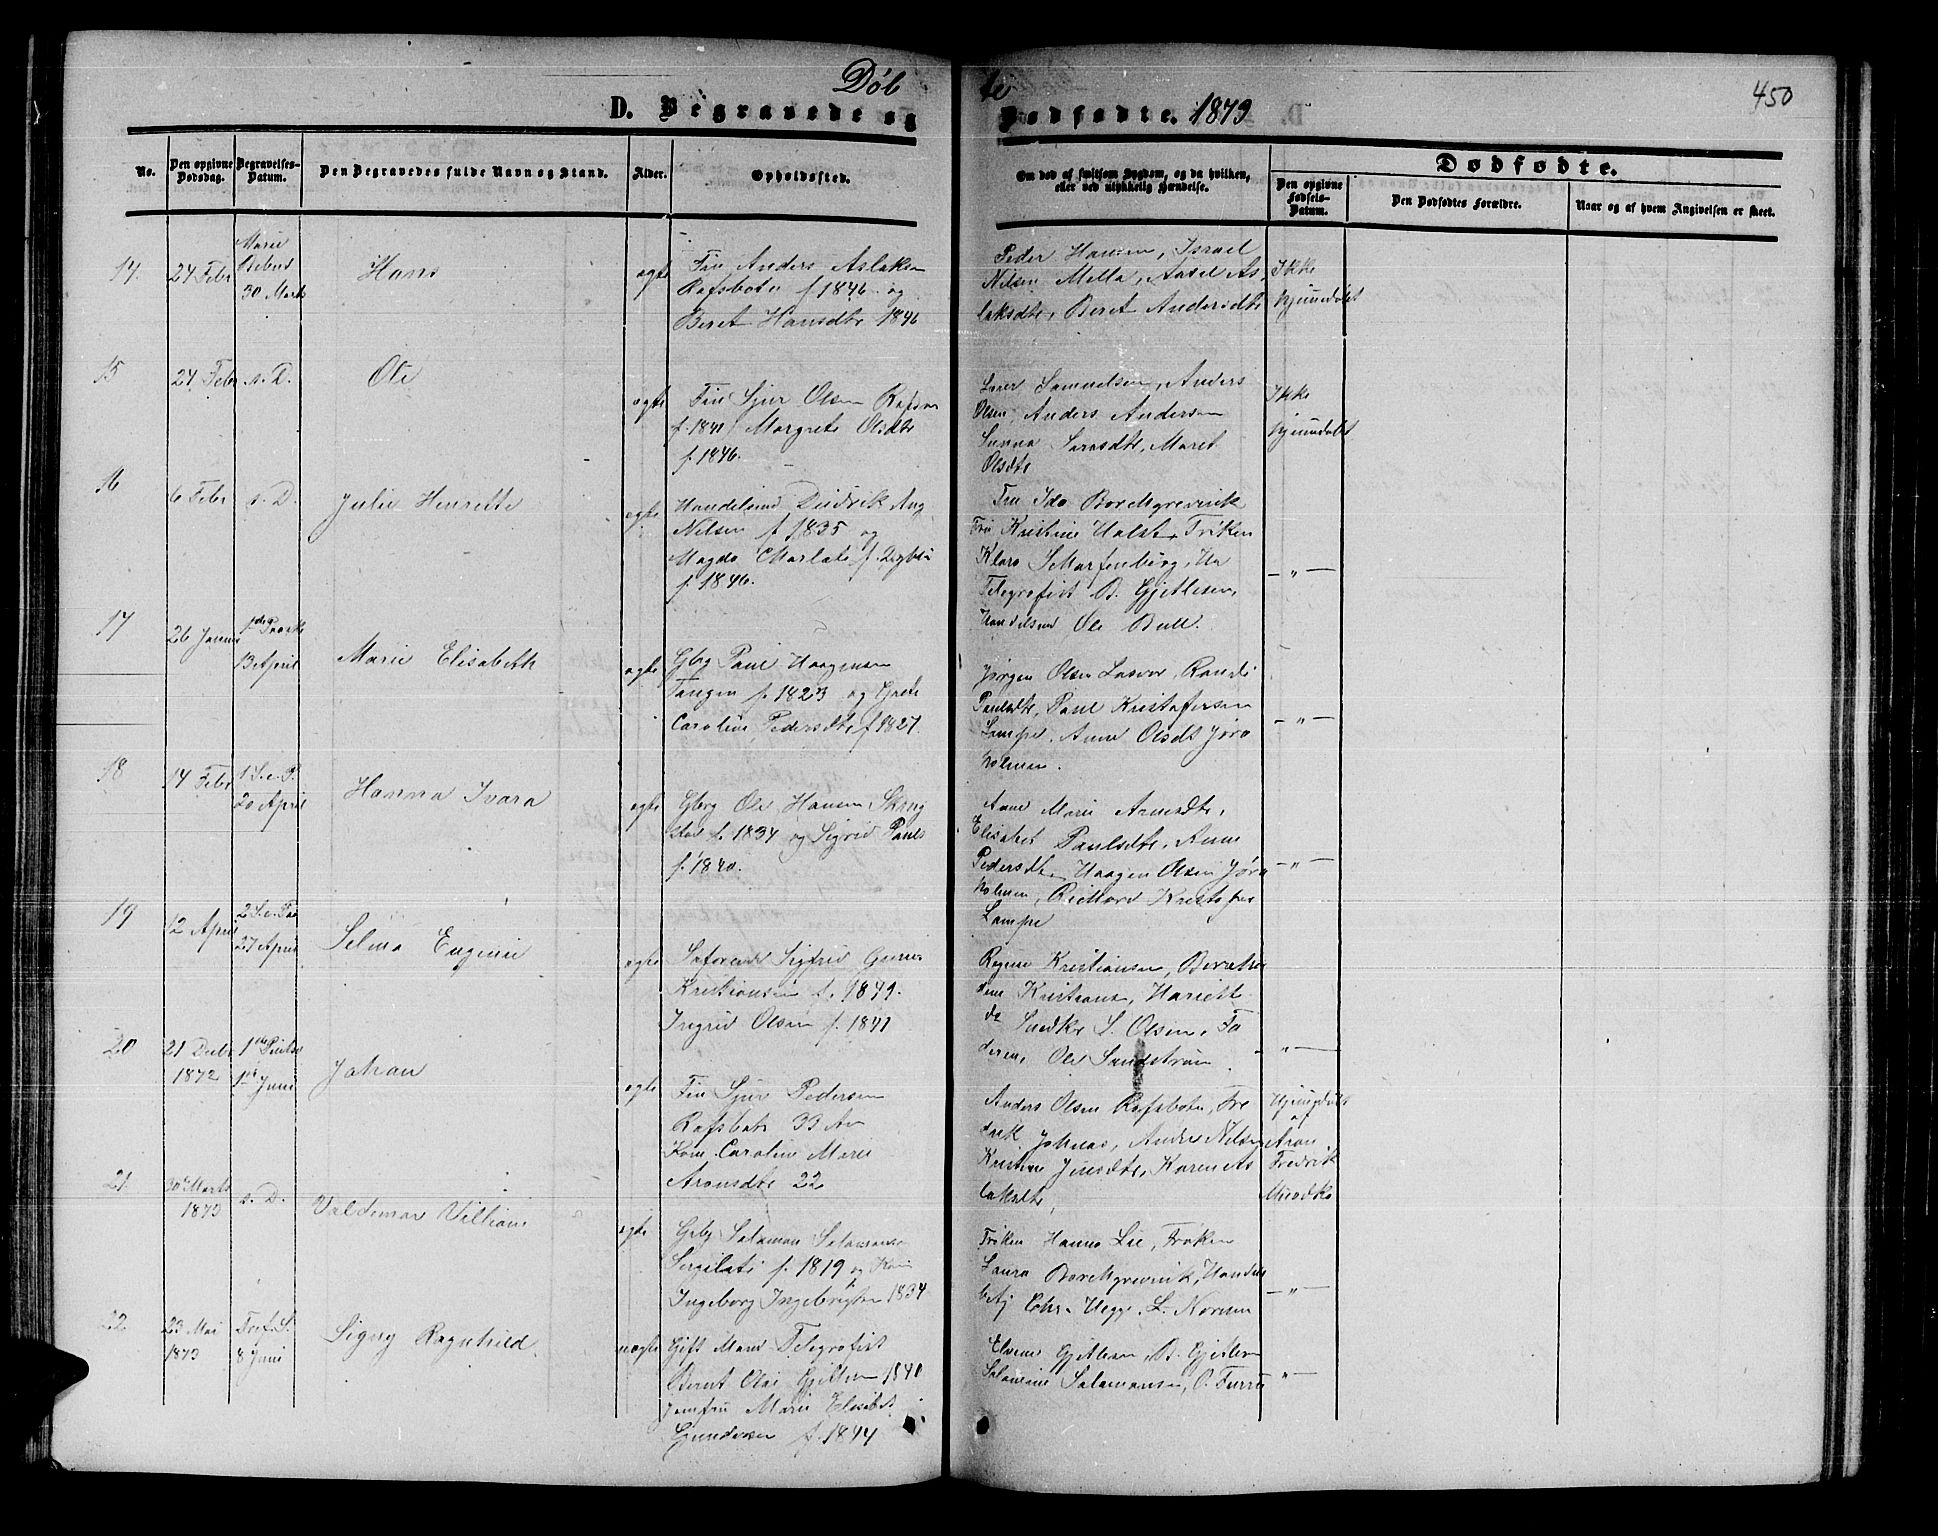 Døbte
450
D. Begravede og Dødfødte. 1873
No.
Den opgivne Dødsdag.
Begravelses-Datum.
Den Begravedes fulde Navn og Stand.
Alder.
Opholdssted.
Om død af smitsom Sygdom, og da hvilken, eller ved ulykkelig Hændelse.
Dødfødte.
Den opgivne Fødsels-Datum.
Den Dødfødtes Forældre.
Naar og af hvem Angivelsen er skeet.
14.
24 Febr
Marie Bebud 30 Marts
Hans
ægte
Fin Anders Aslaksen
Rafsbotn f 1846 og
Beret Hansdtr 1846
Peder Hansen, Israel
Nilsen Mella, As
laksdtr, Beret Andersdtr
Ikke hjemmedøbt
15
24 Febr
s. D.
Ole
ægte
Fin Sjur Olsen
f. 1841 Margrete Olsdtr
f. 1846.
Samuelsen, Anders
Olsen, Anders Andersen
Sunna Larsdtr, Maret
Olsdtr
Ikke hjemmedøbt
16
6 Febr
s. D.
Julie Henrette
ægte
Handelsmd Didrik Aug
Nilsen f. 1835 og
Magda Charlotte f.
f. 1846.
Fru Ida Borchgrevink
Fru Kristine Halst, Frøken
Klara
Telegrafist B. Gjetlesen,
Handelsmd Ole Bull.
— " —
17
26 Januar
1ste Paaske 13 April
Marie Elisabeth
ægte
Gbrg Paul Haagensen
Tangen f. 1823 og Grete
Caroline Pedersdtr f 1827.
Jørgen Olsen Randi
Paulsdtr, Paul Kristofersen
Lampe, Anne Olsdt Jøra
holmen.
— " —
18
14 Febr
1 S. e. P. 20 April
Hanna Ivara
ægte
Gbrg Ole Hansen
f. 1834 og Sigrid Pauls
f. 1840.
Anne Marie Arnesdtr,
Elisabet Paulsdtr, Anne
Pedersdtr, Haagen Olsen Jøra
holmen, Rickard Kristofer
Lampe
— " —
19
12 April
2 S. e. Paa 27 April
Selma Eugenie
ægte
Søfarende Sigfrid
Kristiansen f. 1849.
Ingrid Olsen f. 1841
Regine Kristiansen,
Kristians, Hariett
S. Olsen, Fa
deren, Ole Sandstrøm.
— " —
20
21 Decbr 1872
1ste Pintse 1ste Juni
Johan
ægte
Fin Sjur Pedersen
Rafsbotn 33 Aar
Kone Caroline Marie
Aronsdtr 22
Anders Olsen Rafsbotn, Fre
drik Johnas, Anders Nilsen
Kristine Jensdtr, Karen As
laksdtr,
Hjemmedøbt af Aron Fredrik
21.
30 Marts 1873
s. D.
Valdemar Villiam
ægte
Gbrg Salamon Salamonsen
f. 1819 og Kone
Ingeborg Ingebrigtsen 1834
Frøken Hanna Lie, Frøken
Laura Borchgrevink, Handels
betj Chr. Hegge, L. Norum
— " —
22
23 Mai 1873
Tref. S. 8 Juni
Signy Ragnhild
uægte
Gift Mand Telegrafist
Bernt Olai Gjetlesen 1840
Jomfru Marie Elisabet
Gundersen f. 1844
Elvine Gjetlesen, B. Gjetlesen
Salamine Salamonsen, O. Furru
— " —